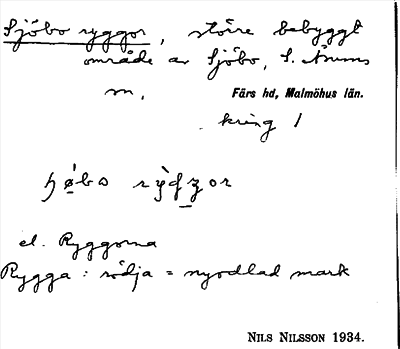 Sjöbo ryggor, större bebyggt
område av Sjöbo, S. Åsums
m,
Färs hd, Malmöhus län.
kring 1
rygzor
el. Ryggorna
Rygga : rödja = nyodlad mark
NILS NILSSON 1934.